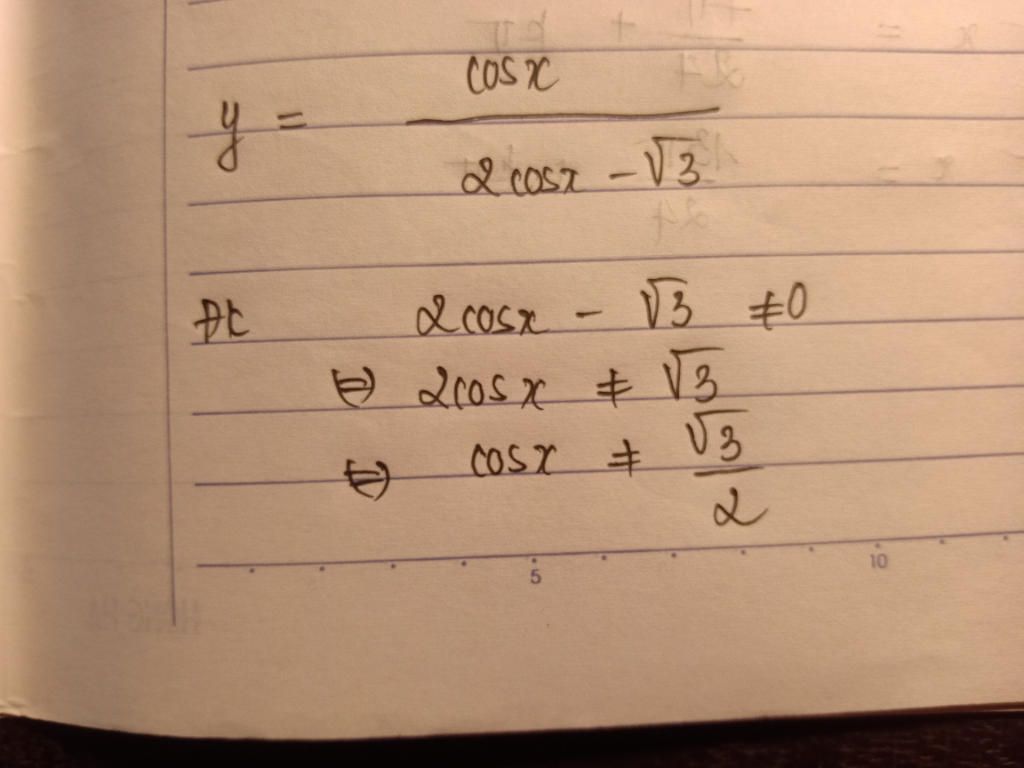 y = cosx / 2cosx - √3
Đk 2cosx - √3 ≠ 0
⇔ 2cosx ≠ √3
⇔ cosx ≠ √3 / 2
5 10